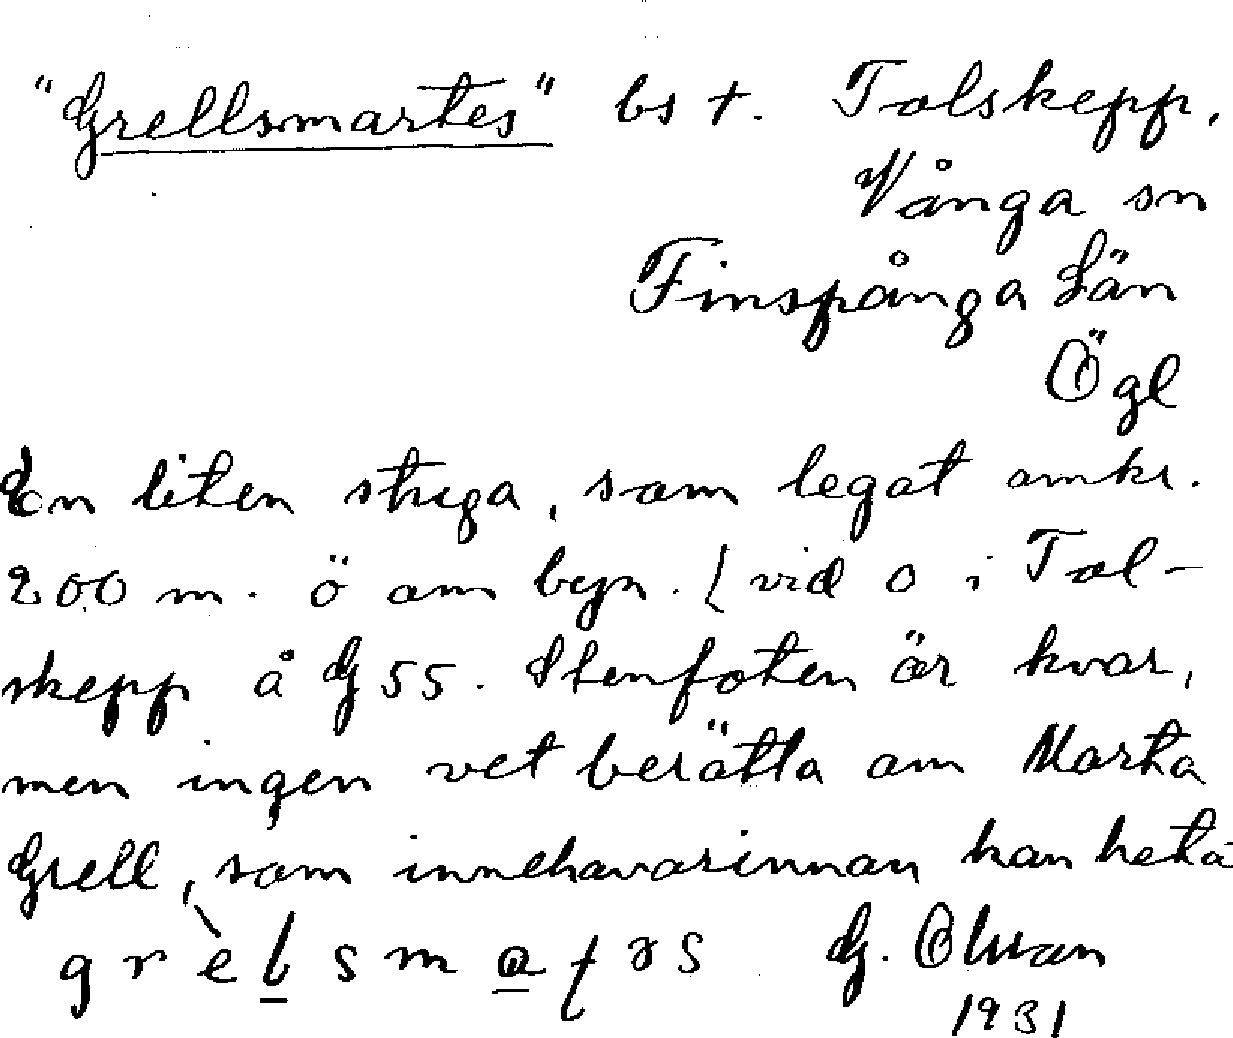 "Grellsmartes" bs t. Tolskepp,
Vånga sn
Finspånga Län
Ögl
En liten stuga, som legat omkr.
200 m. ö om byn. (vid o i Tol-
skepp å G 55. Stenfoten är kvar,
men ingen vet berätta om Marta
Grell, som innehavarinnan kan heta
G. Olsson
1931